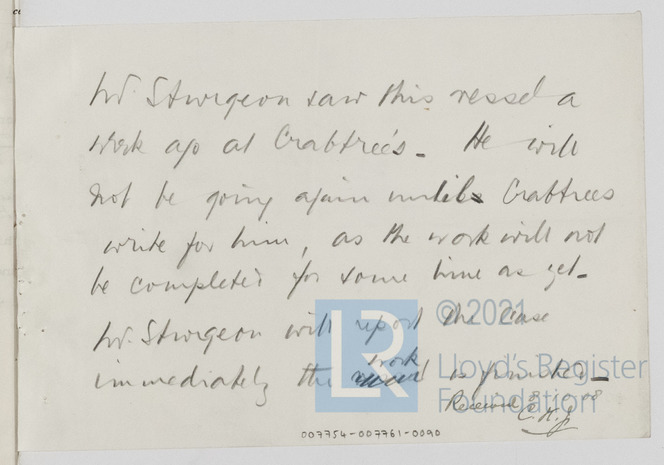 Mr. Sturgeon saw this vessel a
week ago at Crabtree's. He will
not be going again until Crabtrees
write for him, as the work will not
be completed for some time as yet.
Mr. Sturgeon will report the case
immediately the work is finished.
© 2021
LR Lloyd's Register
Foundation
Received
C.H.J.
007754-007761-0090